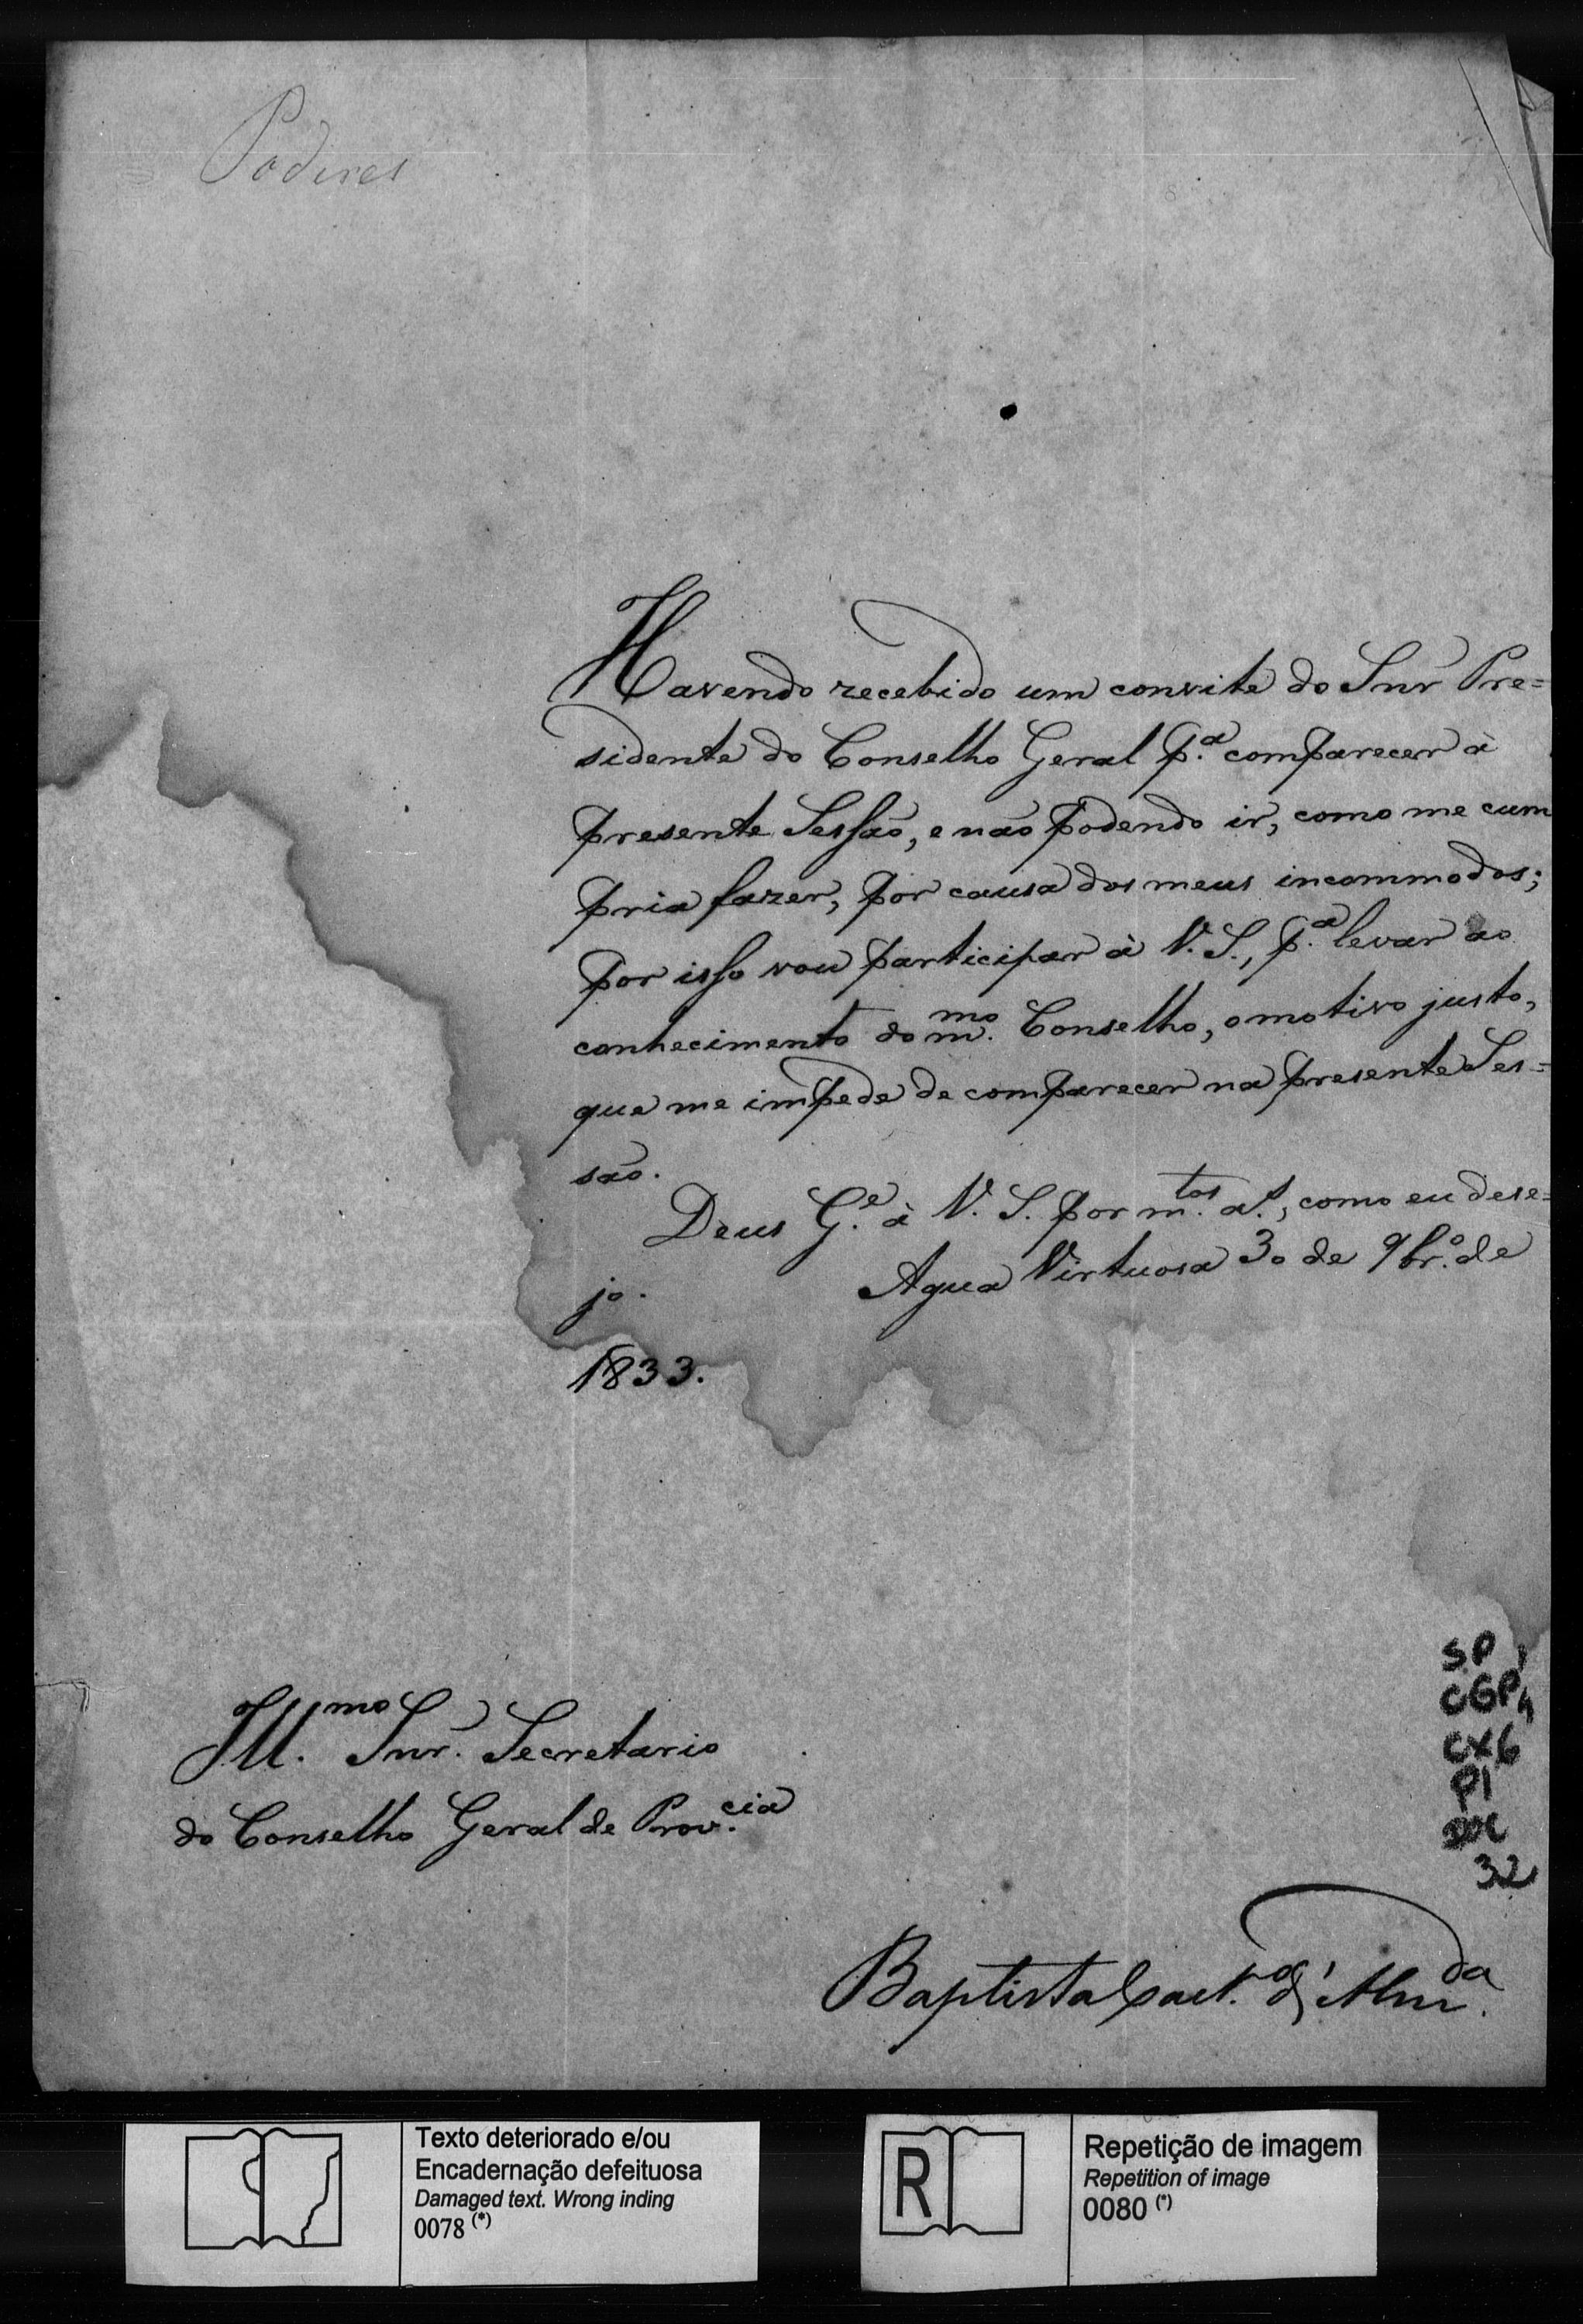 Poderes
Havendo recebido um convite do Snr Pre=
sidente do Conselho Geral p.ª comparecer à
presente Sessão, e não podendo ir, como me cum
pria fazer, por causa dos meus incommodos;
por isso vou participar à V. S., p.ª levar ao
conhecimento do m.mo Conselho, o motivo justo,
que me impede de comparecer na presente Ses=
são.
Deus G.e à V. S. por m.tos a.s, como eu dese=
jo. Agua Virtuosa 30 de 9br.o de
1833.
Ill.mo Snr. Secretario
do Conselho Geral de Prov.cia
SP
CGP4
CX6
P1
DOC
32
Baptista Caet.o d'Alm.da
Texto deteriorado e/ou
Encadernação defeituosa
Damaged text. Wrong inding
0078 (*)
R
Repetição de imagem
Repetition of image
0080 (*)